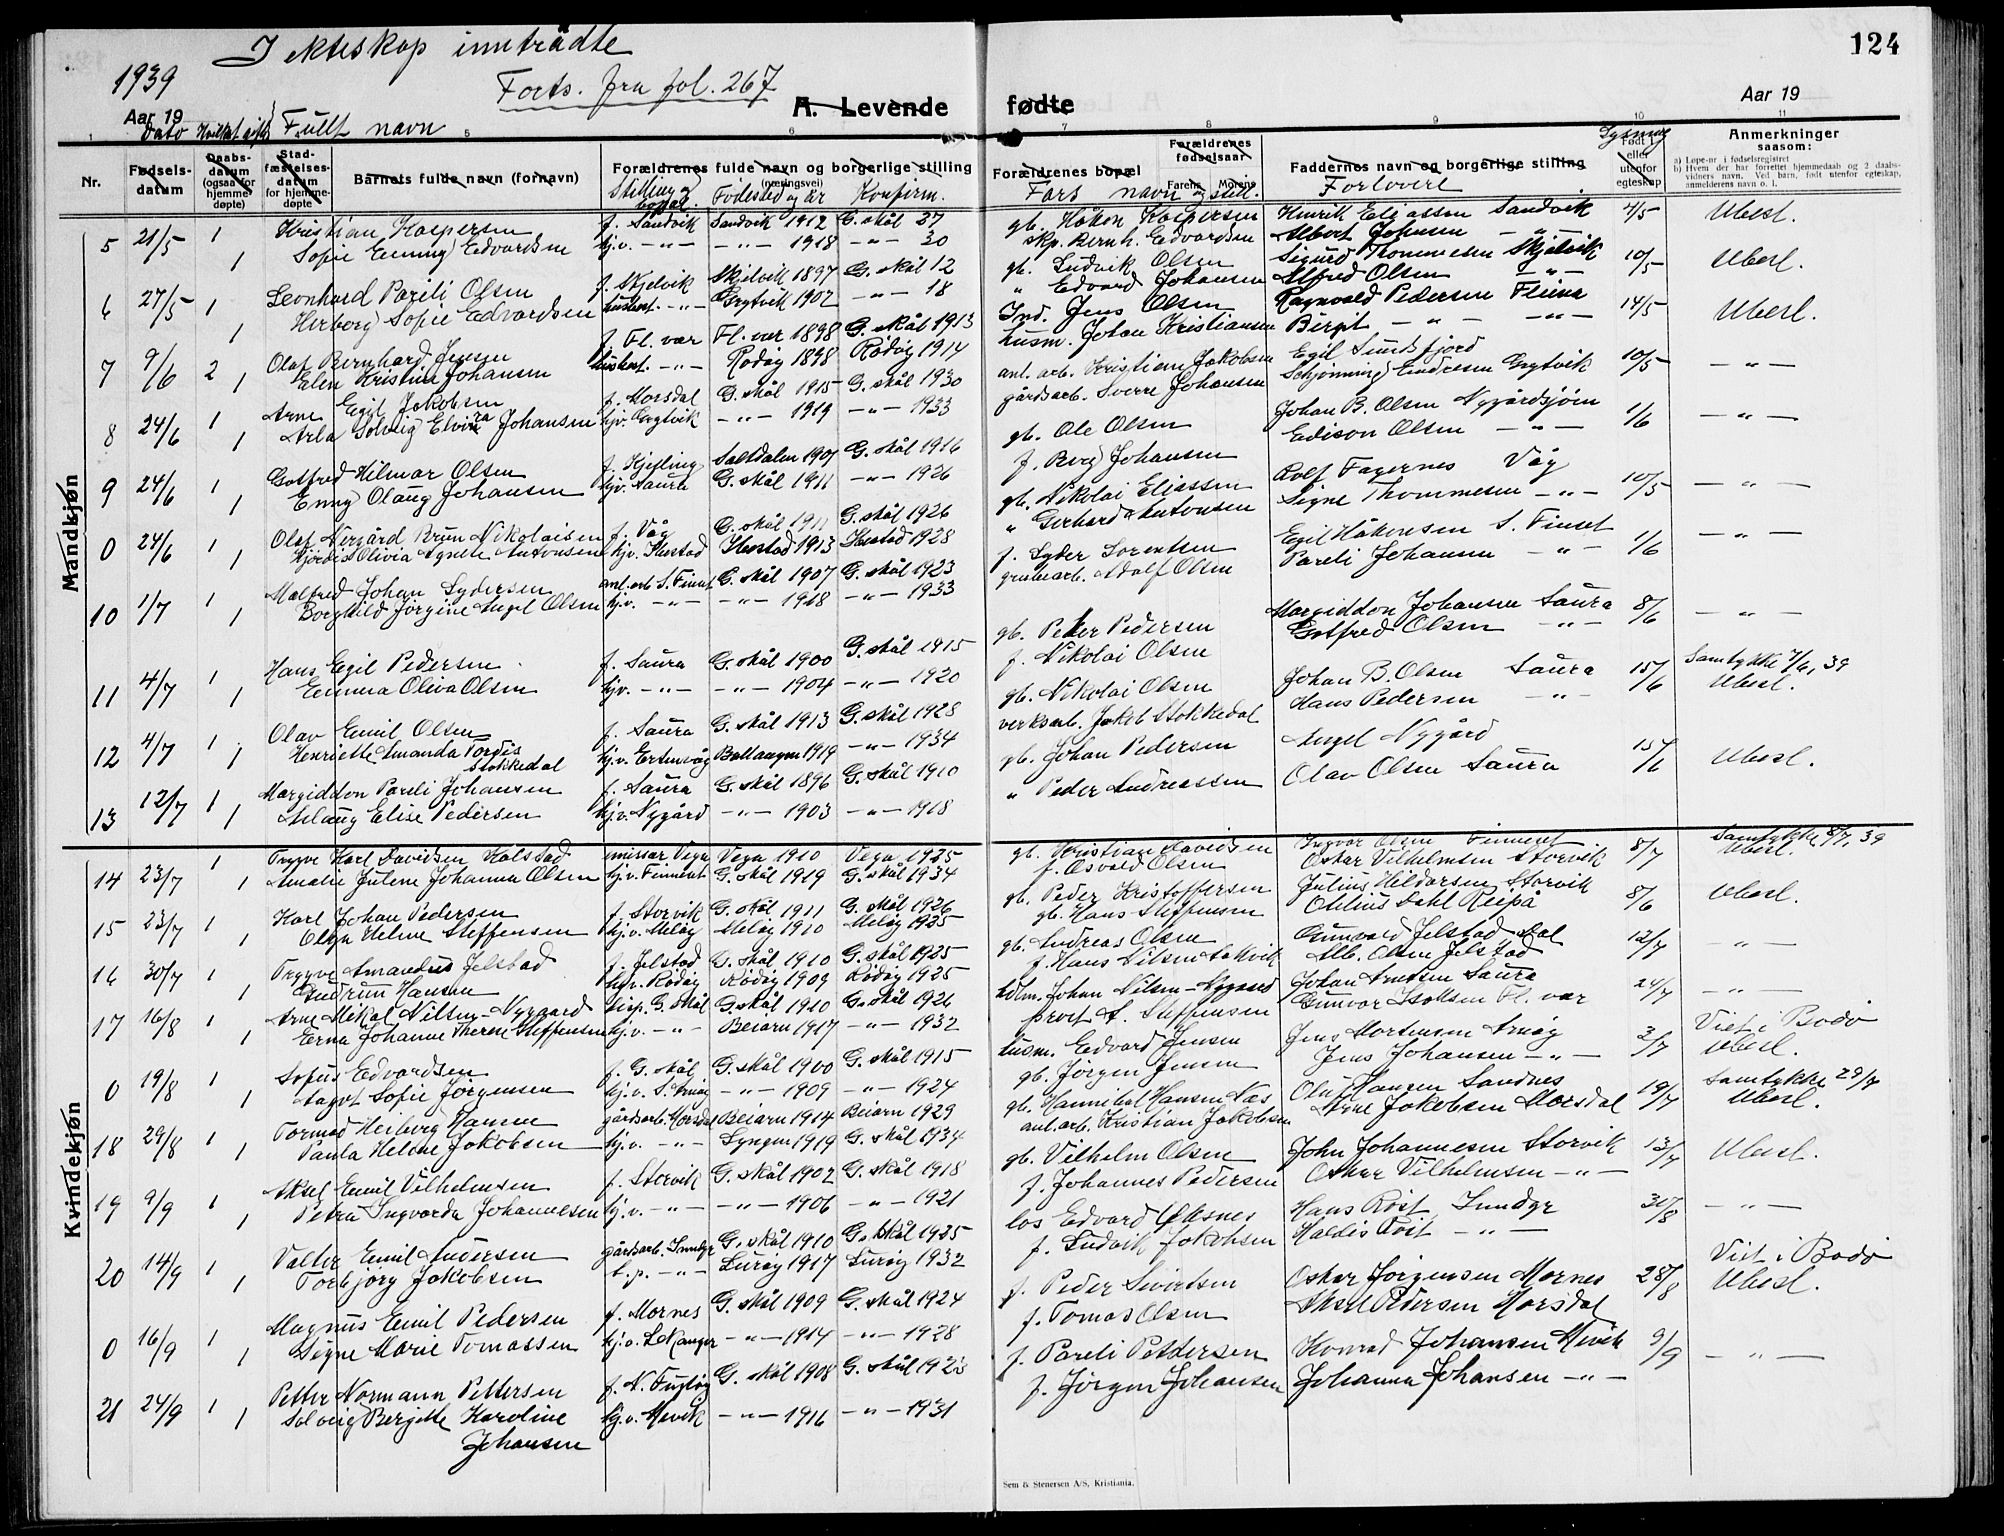 124
I ekteskap inntrådte
1939
Forts. fra fol. 267
A. Levende fødte
Aar 19
Aar 19
Dato Hvilket ekt. Fullt navn
Nr. Fødsels-datum Daabs-datum (ogsaa for hjemme-døpte) Stad-fæstelses-datum for hjemme-døpte Barnets fulde navn (fornavn) Forældrenes fulde navn og borgerlige stilling (næringsvei) Forældrenes bopæl Forældrenes fødselsaar Farens Morens Faddernes navn og borgerlige stilling Født i eller utenfor egteskap Anmerkninger saasom:
a) Løpe-nr i fødselsregistret
b) Hvem der har forrettet hjemmedaab og 2 daabs-vidners navn. Ved barn, født utenfor egteskap, anmelderens navn o. l.
Stilling, bopæl. Fødested og år Konfirm. Fars navn og still. Forlovere Lysning
Mandkjøn
5 21/5 1 Kristian Kaspersen f. Sandvik Sandvik 1912 G.skål 27 gb. Håkon Kaspersen Henrik Eliassen Sandvik 4/5 Ubesl.
1 Sofie Emmy Edvardsen hj.v. -"- -"- 1918 -"- 30 skp. Bernh. Edvardsen Albert Johnsen -"-
6 27/5 1 Leonhard Pareli Olsen f. Skjelvik Skjelvik 1897 G.skål 12 gb. Ludvik Olsen Sigurd Thommesen Skjelvik 10/5 Ubesl.
1 Herborg Sofie Edvardsen husbest. -"- Grytvik 1902 -"- 18 " Edvard Johansen Alfred Olsen -"-
7 9/6 2 Olaf Bernhard Jensen f. Fl. vær Fl. vær 1898 G.skål 1913 Ind. Jens Olsen Ragnvald Pedersen Fleina 14/5 Ubesl.
1 Elen Kristine Johansen husbest. -"- Rødøy 1898 Rødøy 1914 husm. Johan Kristiansen Birgit -"- -"-
8 24/6 1 Arne Egil Jakobsen f. Morsdal G.skål 1915 G.skål 1930 anl. arb. Kristian Jakobsen Egil Sundsfjord 10/5 -"-
1 Arla Solveig Elvira Johansen hjv. Grytvik -"- 1919 -"- 1933 gårdsarb. Sverre Johansen Schjønning Endresen Grytvik
9 24/6 1 Gotfred Hilmar Olsen f. Kjelling Saltdalen 1901 G.skål 1916 gb. Ole Olsen Johan B. Olsen Nygårdsjøen 1/6 -"-
1 Enny Olaug Johansen hjv. Saura G.skål 1911 -"- 1926 f. Berg Johansen Edison Olsen -"-
0 24/6 1 Olaf Nergård Brun Nikolaisen f. Våg G.skål 1911 G.skål 1926 gb. Nikolai Eliassen Rolf Fagernes Våg 10/5 -"-
1 Hjørdis Olivia Agnete Antonsen hjv. Herstad Herstad 1913 Herstad 1928 " Gerhard Antonsen Signe Thommesen -"-
10 1/7 1 Malfred Johan Sydersen anl.arb. S. Finset G.skål 1907 G.skål 1923 f. Syder Lorentsen Egil Håkonsen S. Finset 1/6 -"-
1 Borghild Jørgine Angel Olsen hj.v. -"- -"- 1918 -"- 1933 grubearb. Adolf Olsen Pareli Johansen -"-
11 4/7 1 Hans Egil Pedersen f. Saura G.skål 1900 G.skål 1915 gb. Peder Pedersen Margiddon Johansen Saura 8/6 -"-
1 Emma Oliva Olsen hjv. -"- -"- 1904 -"- 1920 f. Nikolai Olsen Gotfred Olsen -"-
12 4/7 1 Olav Emil Olsen f. Saura G.skål 1913 G.skål 1928 gb. Nikolai Olsen Johan B. Olsen Saura 15/6 Samtykke 7/6, 39
1 Henriette Amanda Tordis Stokkedal hj.v. Ertenvåg Ballangen 1919 -"- 1934 verksarb. Jakob Stokkedal Hans Pedersen -"- Ubesl.
13 12/7 1 Margiddon Pareli Johansen f. Saura G.skål 1896 G.skål 1910 gb. Johan Pedersen Angel Nygård 15/6 Ubesl.
1 Aslaug Elise Pedersen hj.v. Nygård -"- 1903 -"- 1918 " Peder Andreassen Olav Olsen Saura
Kvindekjøn
14 23/7 1 Trygve Karl Davidsen Kalstad emissær Vega Vega 1910 Vega 1925 gb. Kristian Davidsen Ingvar Olsen Finneset 8/7 Samtykke 8/7, 39
1 Amalie Julene Johanna Olsen hj.v. Finneset G.skål 1919 G.skål 1934 f. Osvald Olsen Oskar Vilhelmsen Storvik Ubesl.
15 23/7 1 Karl Johan Pedersen f. Storvik G.skål 1911 G.skål 1926 gb. Peder Kristoffersen Julius Hildorsen Storvik 8/6 Ubesl.
1 Olga Helene Steffensen hj.v. Meløy Meløy 1910 Meløy 1925 gb. Hans Steffensen Otelius Dahl Reipå
16 30/7 1 Trygve Amandus Jelstad f. Jelstad G.skål 1910 G.skål 1925 gb. Andreas Olsen Gunvald Jelstad 12/7 -"-
1 Gudrun Hansen hj.v. Rødøy Rødøy 1909 Rødøy 1925 f. Hans Nilsen Alb. Olsen Jelstad
17 16/8 1 Arne Mekal Nilsen-Nygaard G.skål G.skål 1910 G.skål 1926 Johan Nilsen-Nygaard Johan Arntsen Saura 24/7 -"-
1 Erna Johanne Therese Steffensen hj.v. -"- Beiarn 1917 -"- 1932 A. Steffensen Gunvor Isaksen Fl. vær
0 19/8 1 Sofus Edvardsen f. G.skål G.skål 1900 G.skål 1915 husm. Edvard Jensen Jens Mortensen Arnøy 3/7 Viet i Bodø
1 Aagot Sofie Jørgensen hj.v. S. Arnøy -"- 1909 -"- 1924 gb. Jørgen Jensen Jens Johansen -"- Ubesl.
18 29/8 1 Tormod Heiberg Hansen gårdsarb. Morsdal Beiarn 1914 Beiarn 1929 gb. Hannibal Hansen Næs Oluf Hansen Sandnes 19/7 Samtykke 29/7
1 Paula Helene Jakobsen hj.v. -"- Lyngen 1919 G.skål 1934 anl.arb. Kristian Jakobsen Arne Jakobsen Morsdal Ubesl.
19 9/9 1 Aksel Emil Vilhelmsen f. Storvik G.skål 1902 G.skål 1918 gb. Vilhelm Olsen John Johannesen Storvik 13/7 Ubesl.
1 Petra Ingvarda Johannesen hj.v. -"- -"- 1906 -"- 1921 f. Johannes Pedersen Oskar Vilhelmsen -"-
20 14/9 1 Valter Emil Andersen gårdsarb. Inndyr G.skål 1910 G.skål 1925 los Edvard Hans Røst Inndyr 31/8 -"-
1 Torbjørg Jakobsen t.p. -"- Lurøy 1917 Lurøy 1932 f. Ludvik Jakobsen Haldis Røst -"-
0 16/9 1 Magnus Emil Pedersen f. Mornes G.skål 1909 G.skål 1924 f. Peder Sivertsen Oskar Jørgensen Mornes 28/8 Viet i Bodø
1 Signe Marie Tomassen hj.v. Lekanger -"- 1914 -"- 1928 f. Tomas Olsen Aksel Pedersen Morsdal Ubesl.
21 24/9 1 Petter Normann Pettersen f. N. Fugløy G.skål 1908 G.skål 1923 f. Pareli Pettersen Konrad Johansen Mevik 9/9 -"-
1 Solveig Bergitte Karoline Johansen hj.v. Mevik -"- 1916 -"- 1931 f. Jørgen Johansen Johanna Johansen -"-
Sem & Stenersen A/S, Kristiania.